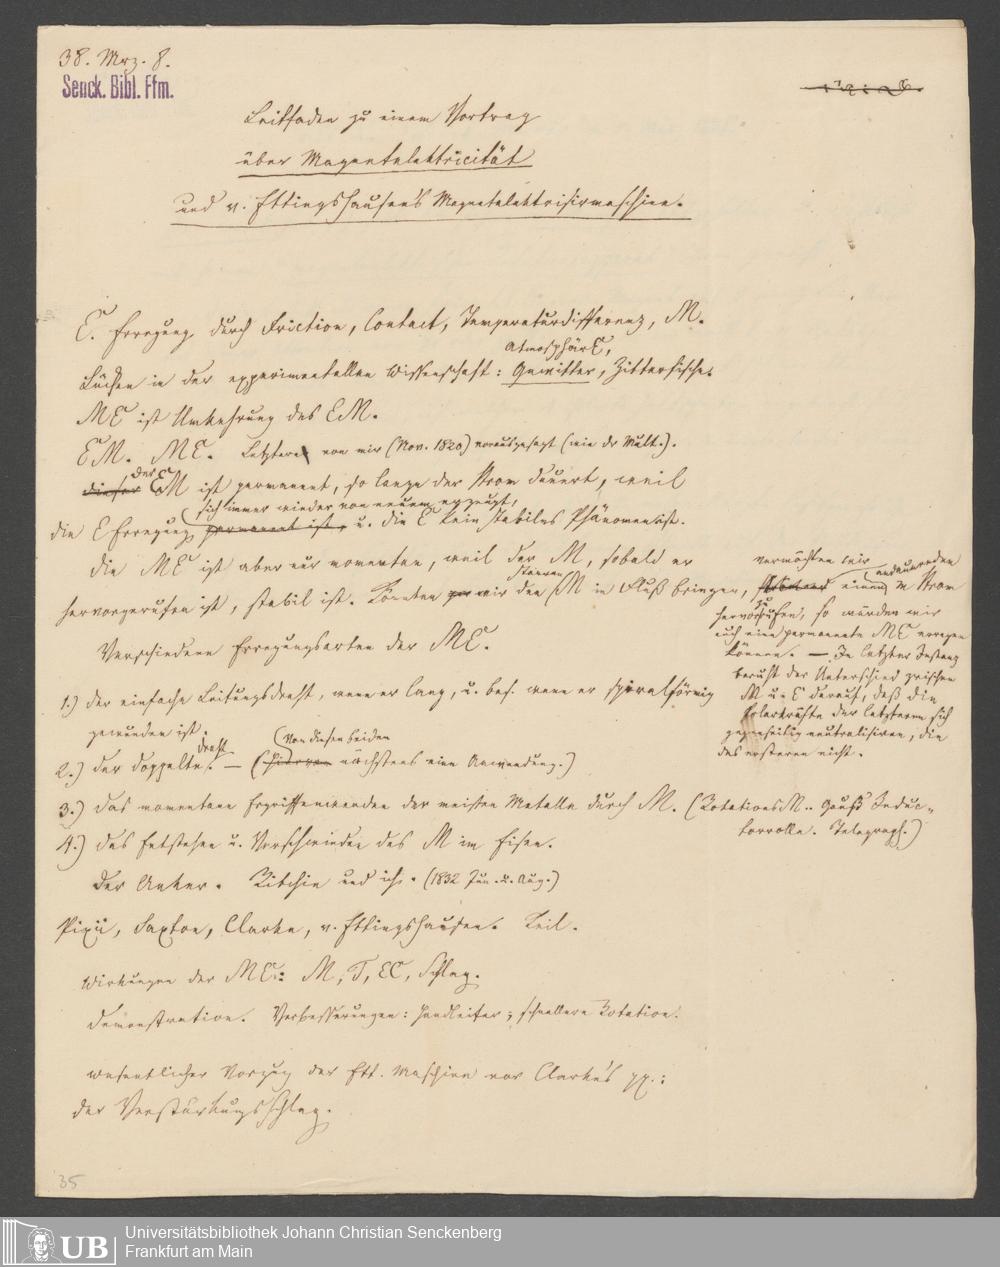 38. Mrz. 8.
Senck. Bibl. Ffm.
Leitfaden zu einem Vortrag
über Magnetelektricität
und v. Ettingshausen's Magnetelektrisirmaschine.
E. Erregung durch Friction, Contact, Temperaturdifferenz, M.
AtmosphärE,
Lücken in der experimentellen Wissenschaft: Gewitter, Zitterfische.
ME ist Umkehrung des EM.
EM. ME. Letztere von mir (Nov. 1820) vorausgesagt (wie dr Mult.).
der
dieser EM ist permanent, so lange der Strom dauert, weil
sich immer wieder von neuem erzeugt,
die E Erregung permanent ist, u. die E kein stabiles Phänomen ist.
die ME ist aber nur momentan, weil der M, sobald er
starren
hervorgerufen ist, stabil ist. Könnten wir den M in Fluß bringen,
vermöchten wir
andauernden
einen M Strom
hervorzurufen, so würden wir
auch eine permanente ME erregen
können. — In letzter Instanz
beruht der Unterschied zwischen
M u. E darauf, daß die
Polarkräfte der letzteren sich
gegenseitig neutralisiren, die
des ersteren nicht.
Verschiedene Erregungsarten der ME.
1.) der einfache Leitungsdraht, wenn er lang, u. bes. wenn er spiralförmig
gewunden ist.
draht
Von diesen beiden
2.) der doppelte. — (Hiervon nächstens eine Anwendung.)
3.) das momentane Ergriffenwerden der meisten Metalle durch M. (RotationsM.. Gauß' Induc-
torrolle. Telegraph.)
4.) das Entstehen u. Verschwinden des M im Eisen.
Der Anker. Ritchie und ich. (1832 Jun. u. Aug.)
Pixii, Saxton, Clarke, v. Ettingshausen. Keil.
Wirkungen der ME: M, T, EC, Schlag.
Demonstration. Verbesserungen: Handleiter; schnellere Rotation.
Wesentlicher Vorzug der Ett. Maschine vor Clarke's pp.:
der Verstärkungsschlag.
35
UB
Universitätsbibliothek Johann Christian Senckenberg
Frankfurt am Main